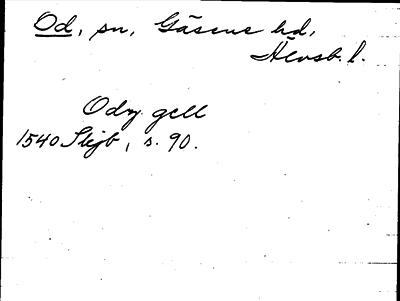 Od, sn, Gäsene hd,
Älvsb. l.
Odz gell
1540 Skjb, s. 90.